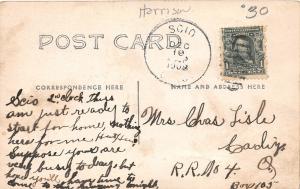 Harrison
'30
SCIO
DEC
19
POST CARD
CORRESPONDENCE HERE
NAME AND ADDRESS HERE
Scio 2 o'clock this
am just ready to
start for home, nothing
here for me
Suppose you are
very busy to days but
hope you'll have time to
come to
Mrs. Chas. Lisle
Cadiz
R.R. No 4. O.
Box 105